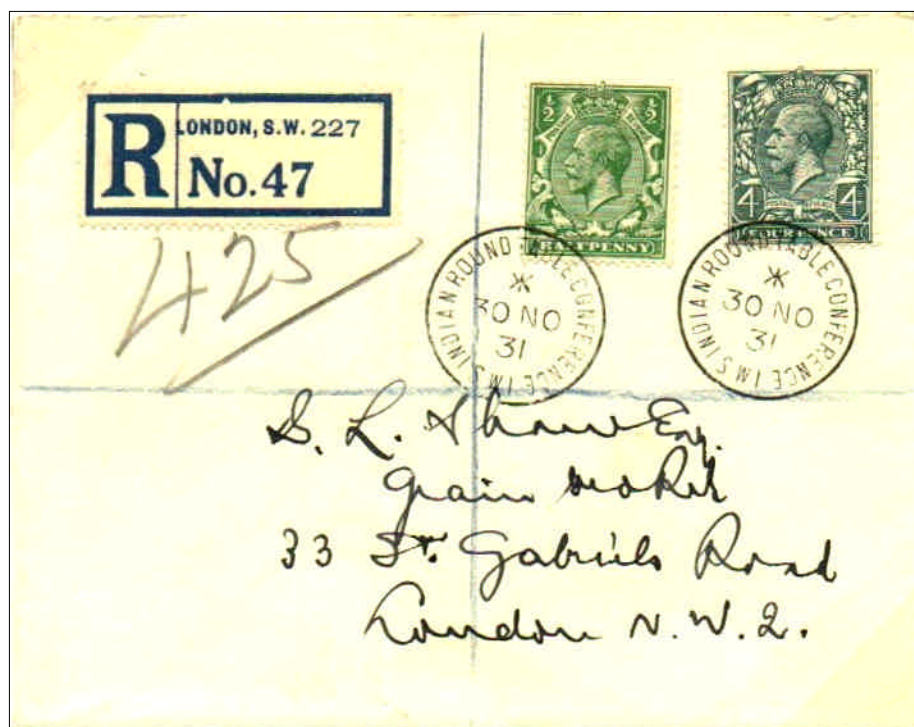 R LONDON, S.W. 227
No. 47
425
½ ½
HALFPENNY
4 4
POSTAGE REVENUE
FOURPENCE
INDIAN ROUND TABLE CONFERENCE SW1
30 NO
31
INDIAN ROUND TABLE CONFERENCE SW1
30 NO
31
S. L. Shaw Esq.
Grain
33 St. Gabriels Road
London N.W.2.